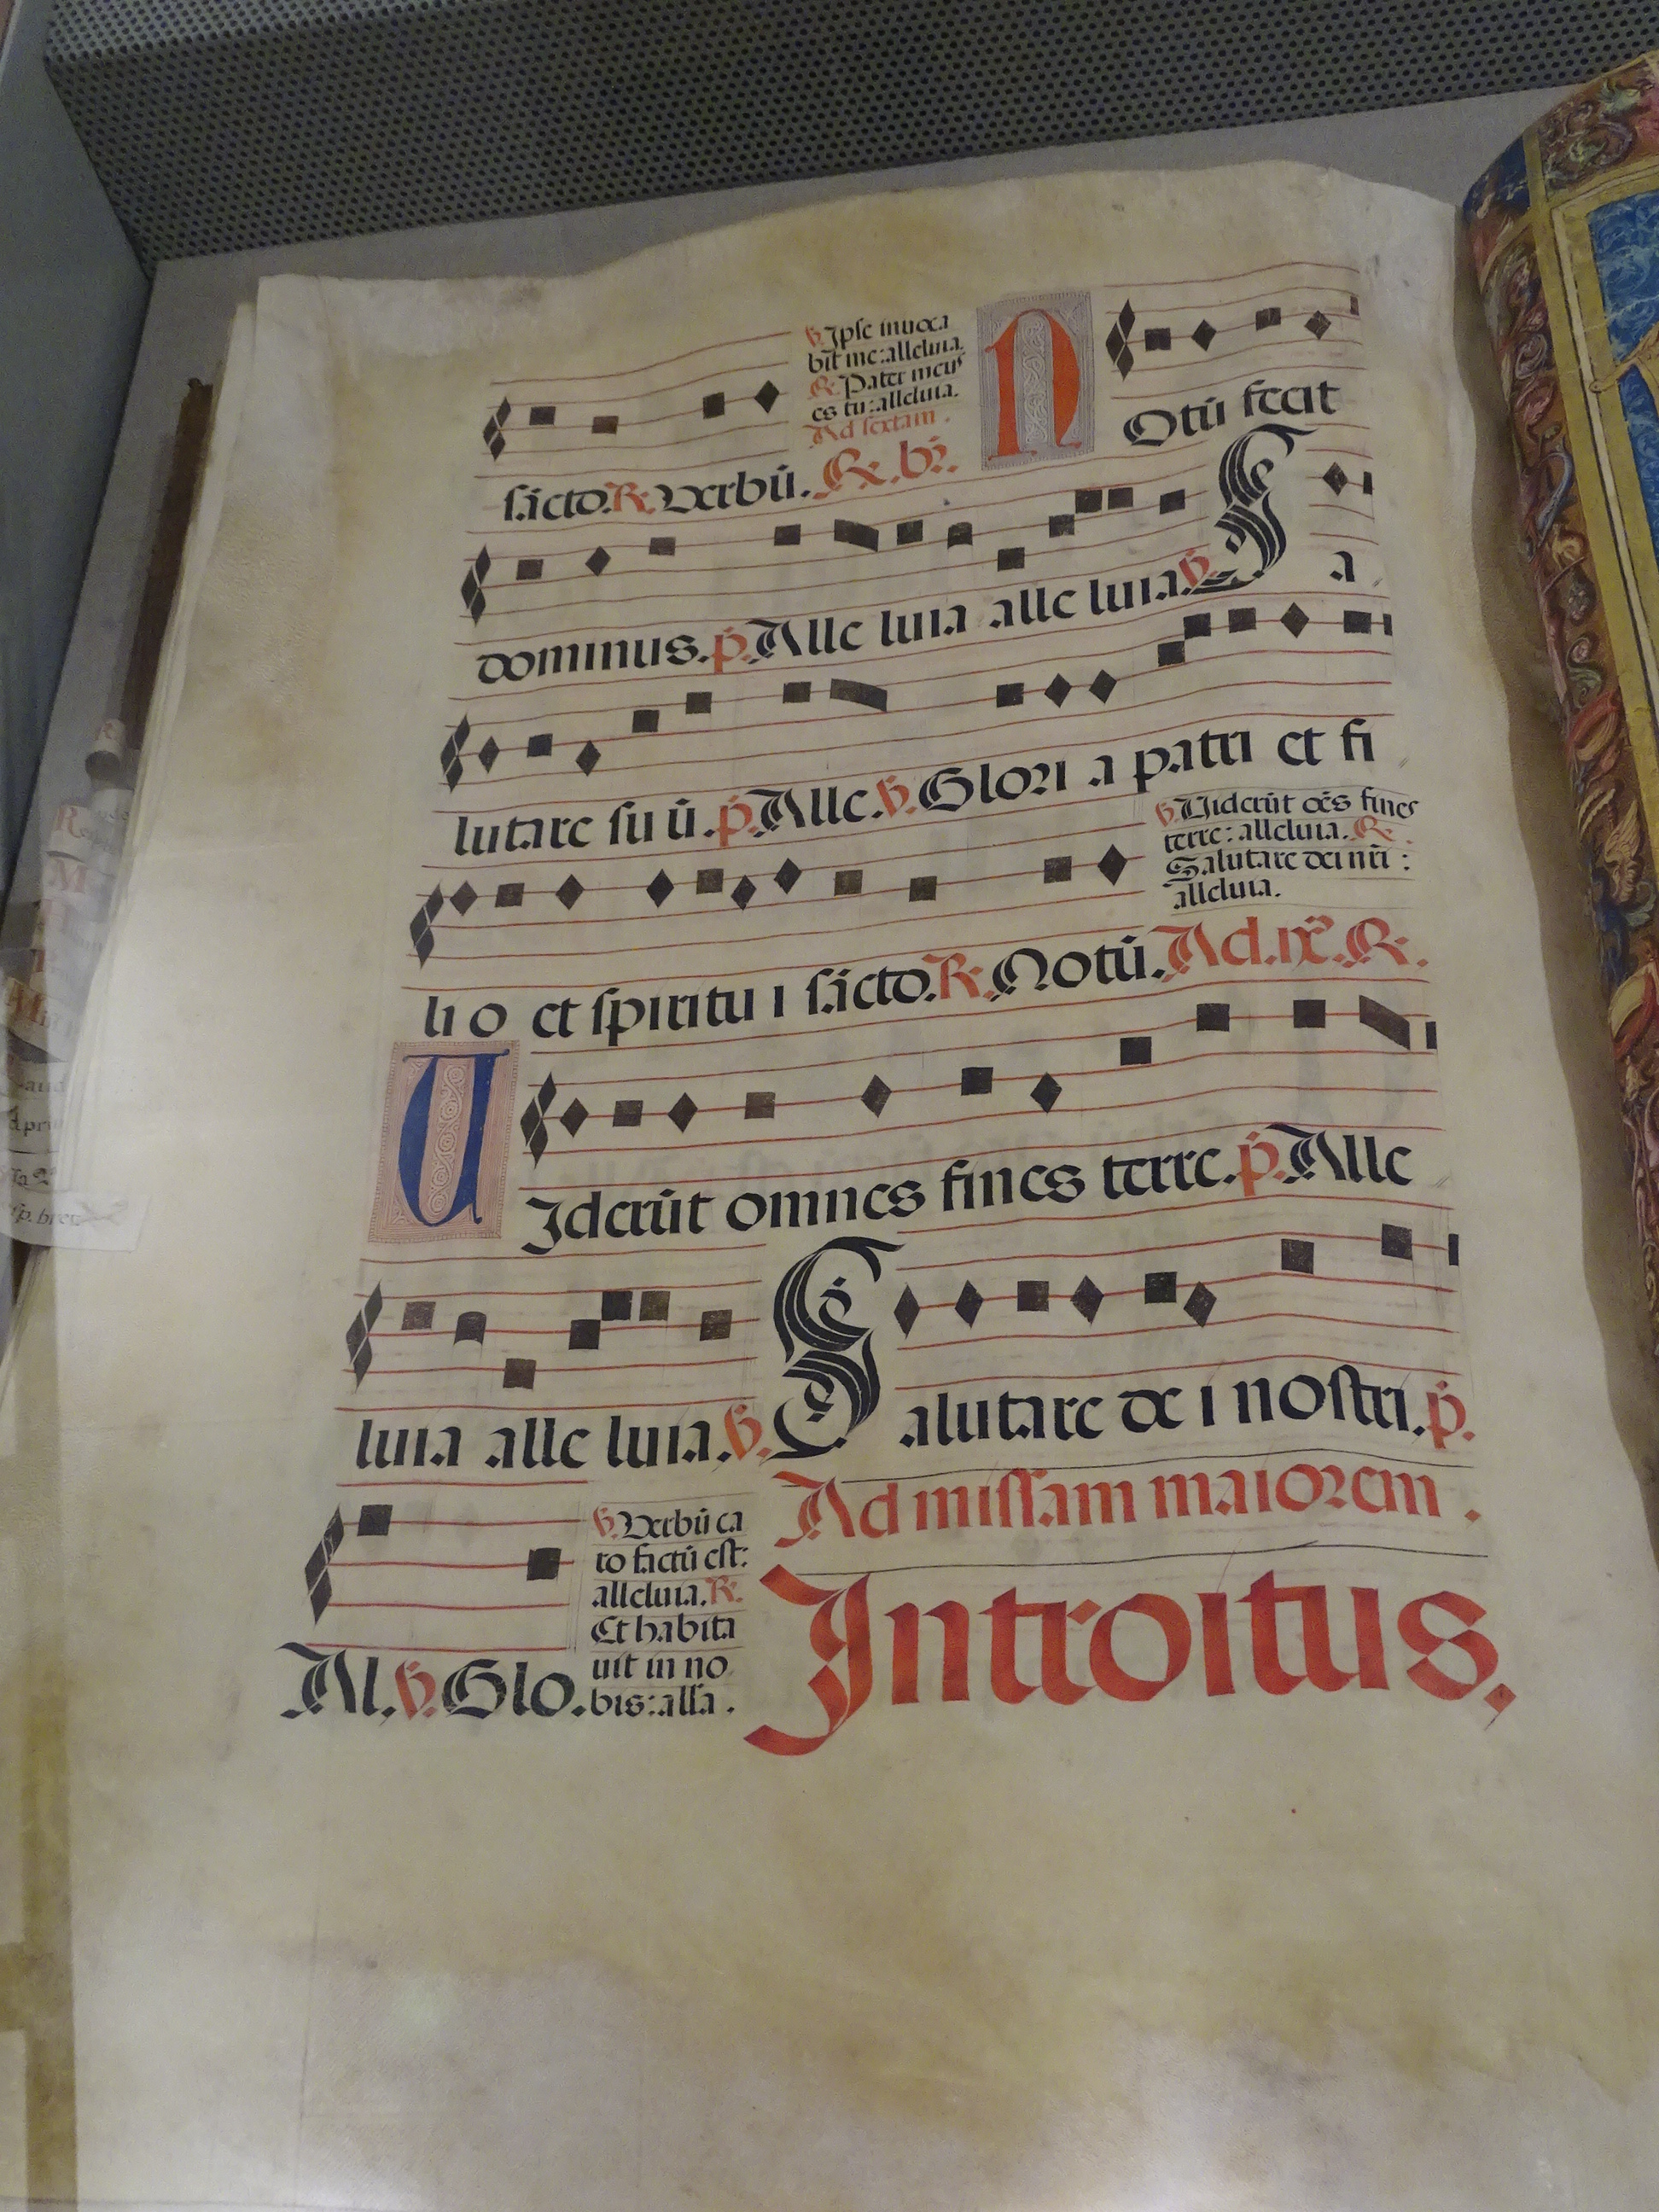 ℣. Ipse inuoca
bit me: alleluia.
℟. Pater meus
es tu: alleluia.
Ad sextam.
sācto. ℟. Verbū. ℟. br̄. NOtū fecit
dominus. p̄. Alle luia alle luia. ℣. S a
lutare su ū. p̄. Alle. ℣. Glori a patri et fi
℣. Uiderūt oēs fines
terre: alleluia. ℟.
Salutare dei nr̄i:
alleluia.
li o et spiritu i sācto. ℟. Notū. Ad. ix. ℟.
UIderūt omnes fines terre. p̄. Alle
luia alle luia. ℣. Salutare de i nostri. p̄.
Al. ℣. Glo.
℣. Verbū ca
ro factū est:
alleluia. ℟.
Et habita
uit in no
bis: alla.
Ad missam maiorem.
Introitus.